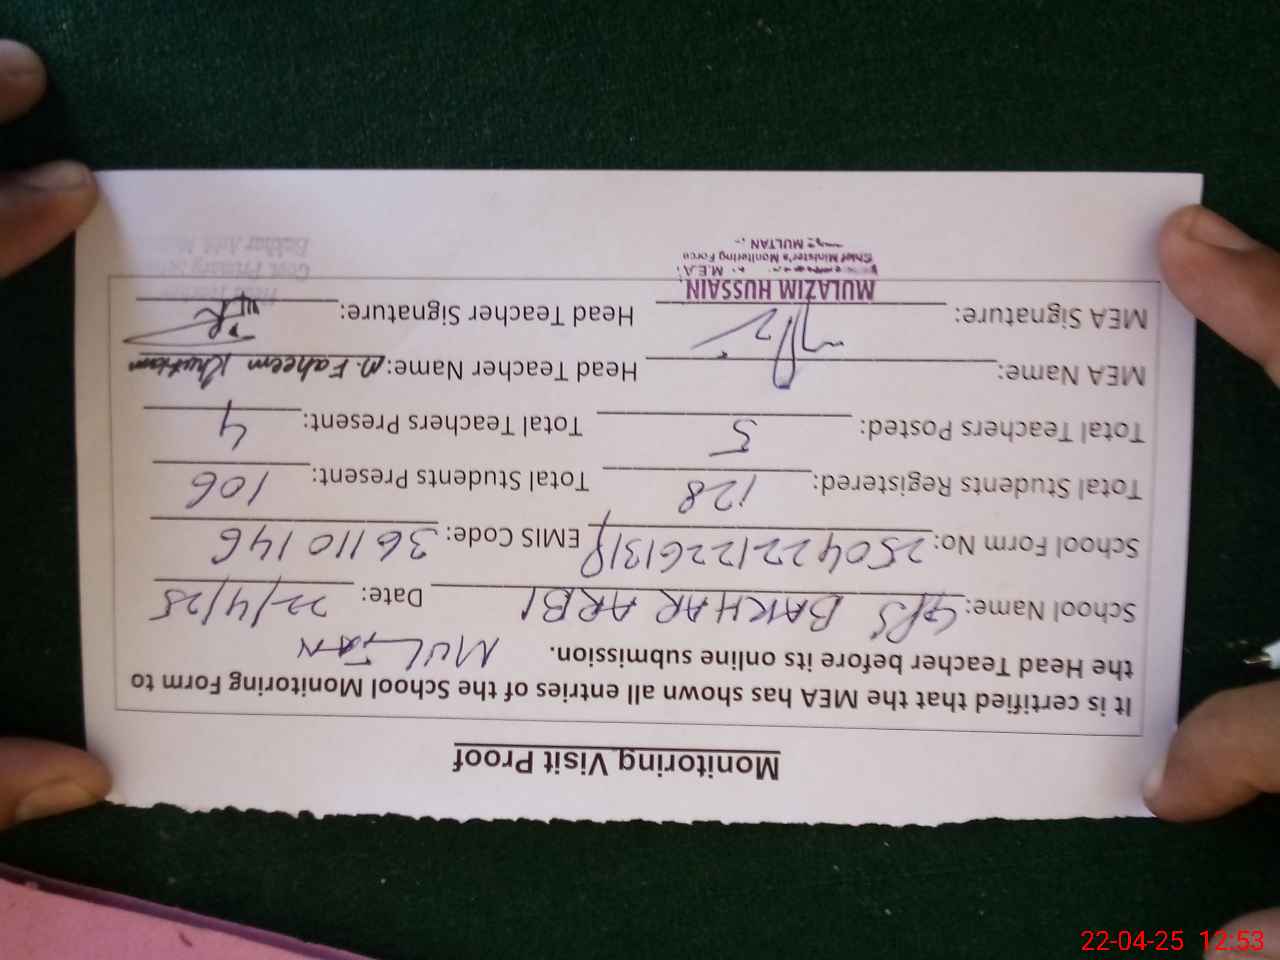 Monitoring Visit Proof
It is certified that the MEA has shown all entries of the School Monitoring Form to
the Head Teacher before its online submission. MULTAN
School Name: GPS BAKHAR ARBI Date: 22/4/25
School Form No: 25042212261318 EMIS Code: 36110146
Total Students Registered: 128 Total Students Present: 106
Total Teachers Posted: 5 Total Teachers Present: 4
MEA Name: Head Teacher Name: M. Faheem
MEA Signature: Head Teacher Signature:
MULAZIM HUSSAIN
M.E.A
Chief Minister's Monitoring Force
MULTAN
22-04-25 12:53